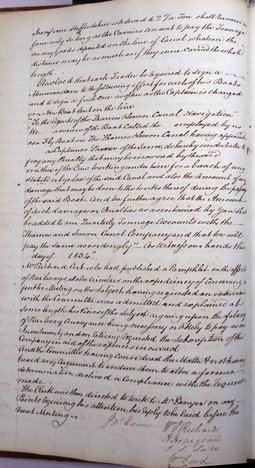 from Staffordshire reduced to 2/ Ton shall remain in
force only so long as the Carriers consent to pay the Tonnage
on any goods deposited on the line of Canal whatever the
distance may be as much as if they were carried the whole
length
Resolved that each Trader be required to sign a
Memorandum to the following effect for each of his Boats
and to sign a fresh one as often as the Captain is changed
or a New Boat sent on the line
To the Agents of the Thames & Severn Canal Navigation
We owners of the Boat called the employed by us
as a Fly Boat on the Thames & Severn Canal having appointed
as Captain of the same, do hereby undertake to
pay any Penalty that may be incurred by the said
or other of the Crew working under him for a breach of any
statute or bye law of the said Canal and also the Amount of any
damage that may be done to the works thereof during the passage
of the said Boat. And we further agree that the Amount
of such damages or Penalties as ascertained by you shall
be added to our Quarterly Tonnage Accounts with the
Thames and Severn Canal Company and that we will
pay the same accordingly As Witness our hands this
day of 1834
Mr Richard Cort who had published a Pamphlet on the effect
of Railways also Circulars on the expediency of convening a
public Meeting on the subject having requested an interview
with the Committee was admitted and explained at
some length his views of the subject arguing upon the fallacy
of Railway Conveyance being necessary or likely to pay as an
Investment and on retiring requested the Subscription of the
Company in aid of the expences incurred
And the Committee having considered the matter & not having
heard any argument to induce them to alter a former
determination declined a Compliance with the request
made
The Clerk was then directed to write to Mr on any
Points requiring his attention, his reply to be laid before the
next Meeting